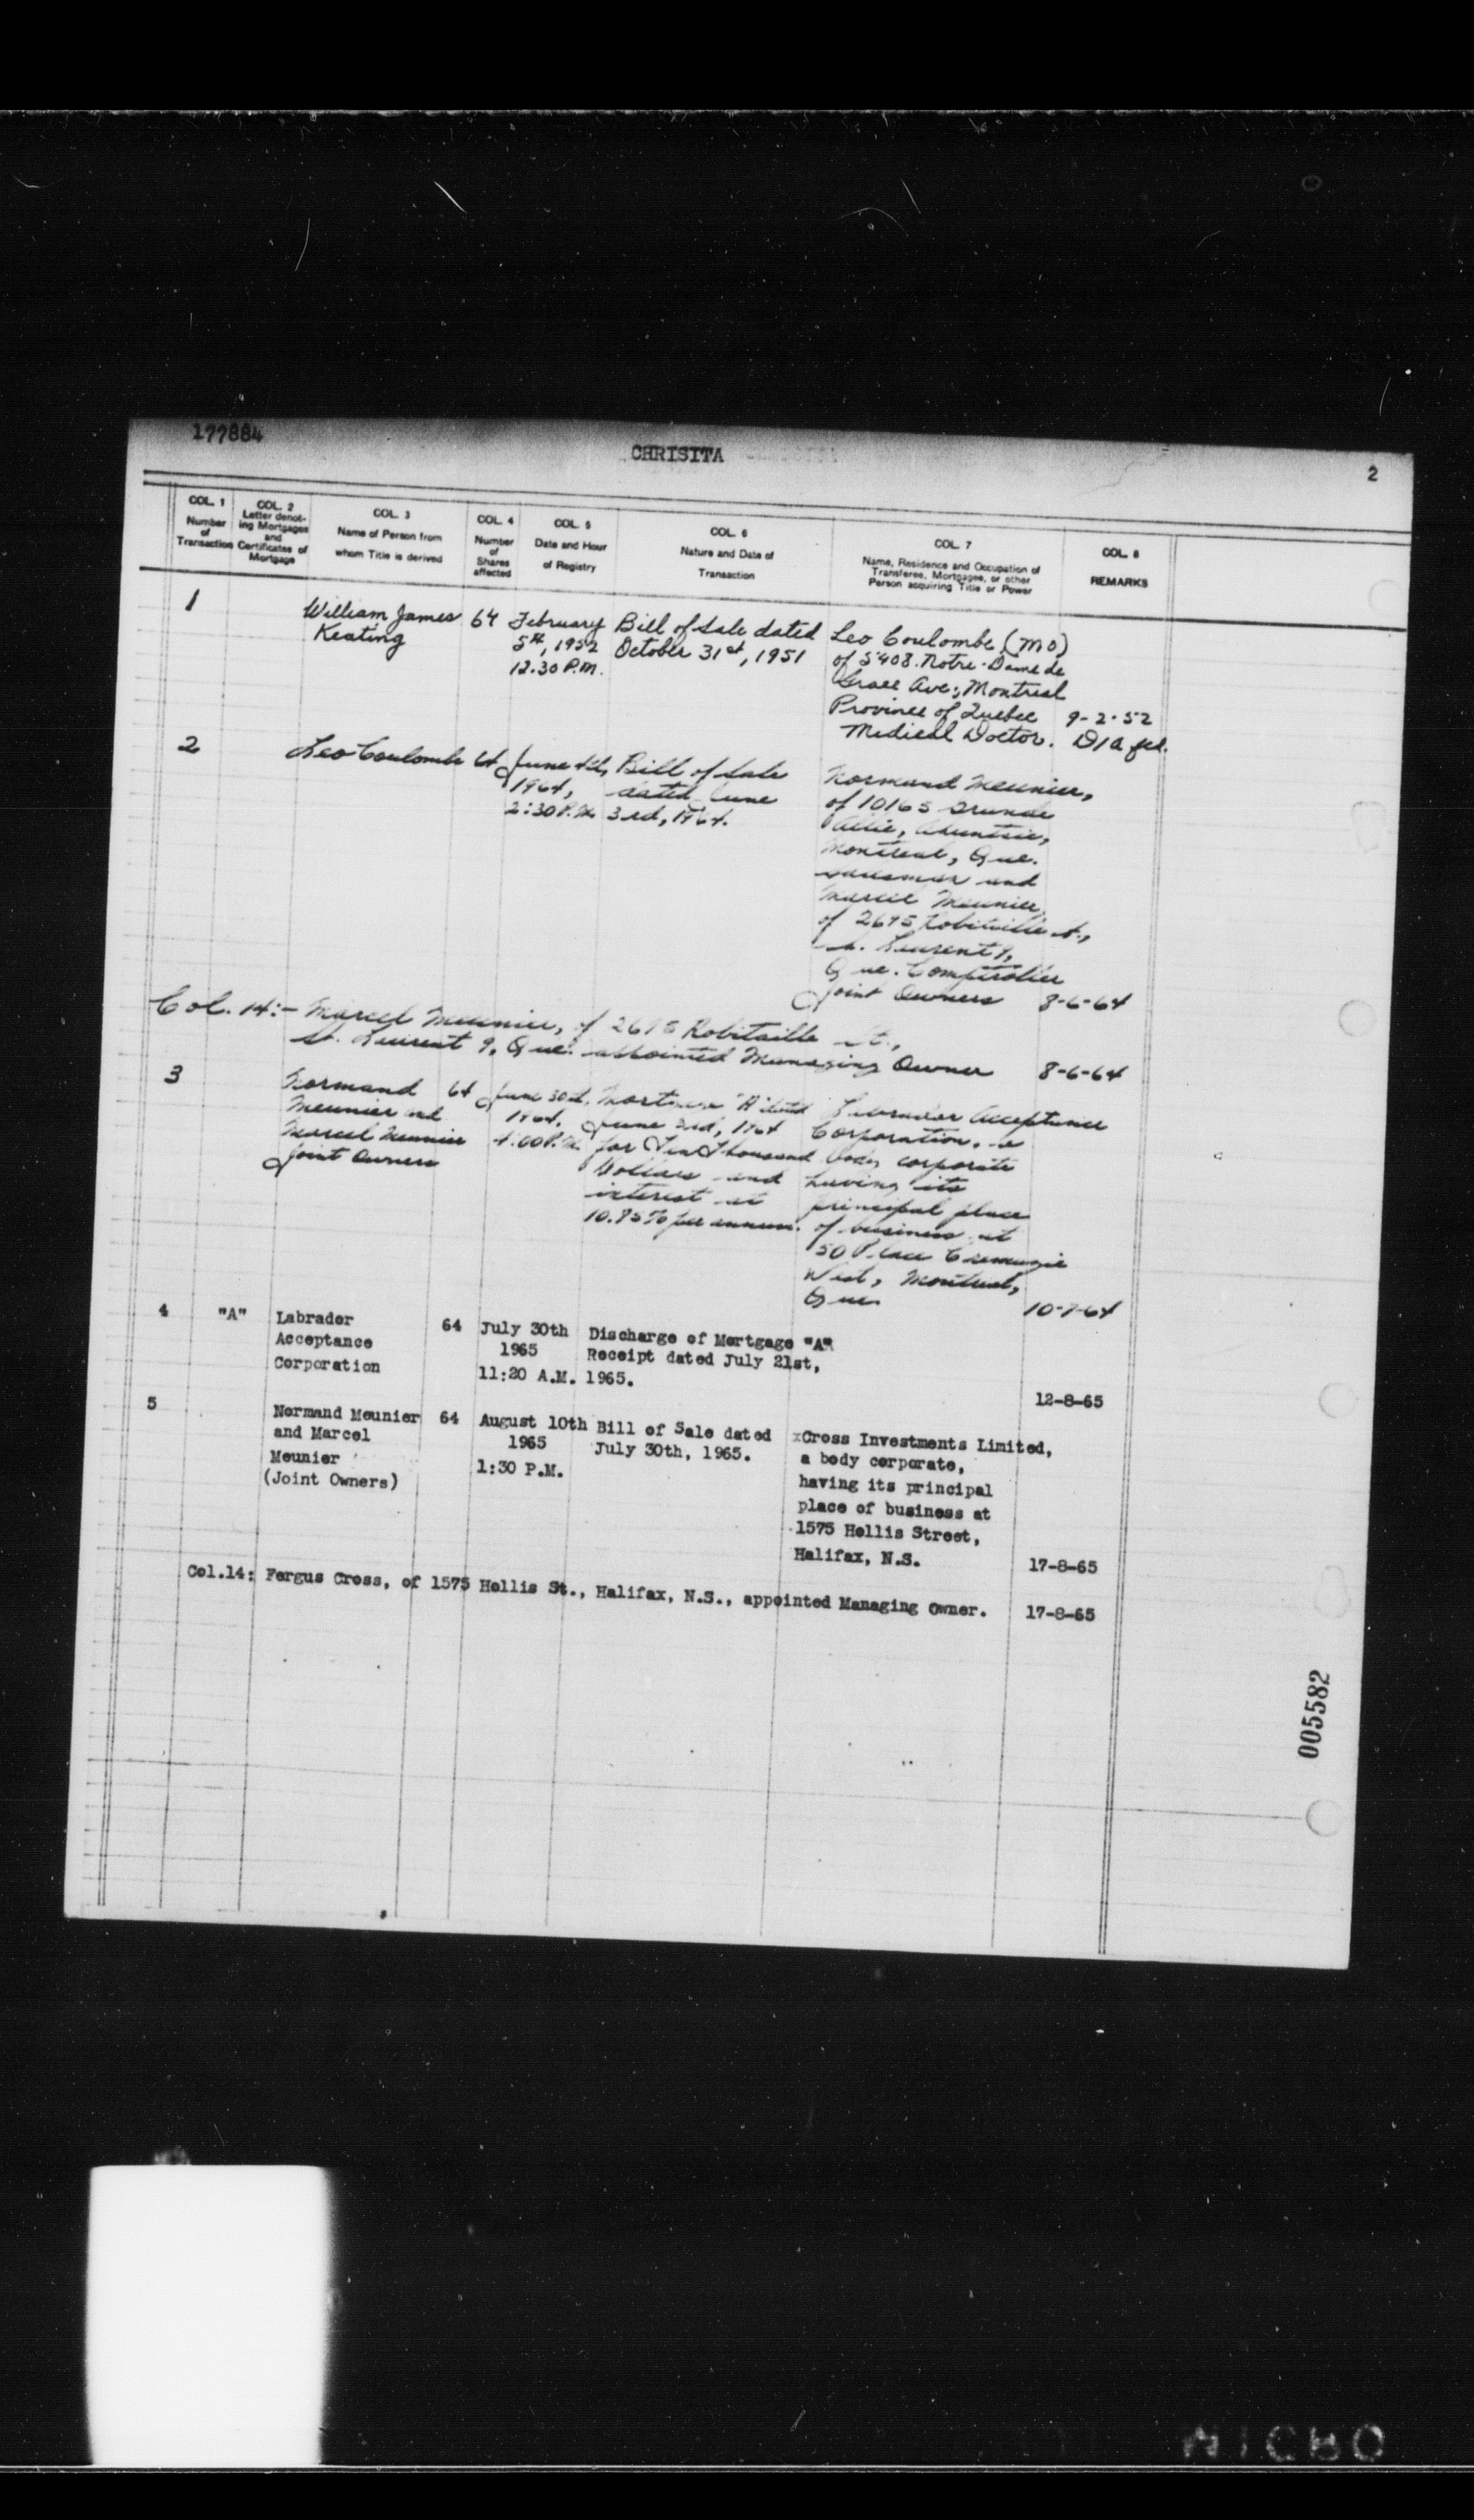 177884
CHRISITA
2
COL. 1
Number
of
Transaction
COL. 2
Letter denot-
ing Mortgages
and
Certificates of
Mortgage
COL. 3
Name of Person from
whom Title is derived
COL. 4
Number
of
Shares
affected
COL. 5
Date and Hour
of Registry
COL. 6
Nature and Date of
Transaction
COL. 7
Name, Residence and Occupation of
Transferee, Mortgagee, or other
Person acquiring Title or Power
COL. 8
REMARKS
1
William James
Keating
64
February
5th, 1952
12.30 P.M.
Bill of Sale dated
October 31st, 1951
Leo Coulombe (MO)
of 5408 Notre-Dame de
Grace Ave., Montreal
Province of Quebec
Medical Doctor.
9-2-52
2
Leo Coulombe
64
June 4th,
1964,
2:30 P.M.
Bill of Sale
dated June
3rd, 1964.
Normand Meunier,
of 10165 Grande
Allie, Ahuntsic,
Montreal, Que.
and
Marcel Meunier
of 2695 Robitaille St.,
St. Laurent 9,
Que. Comptroller
Joint Owners
8-6-64
Col. 14:- Marcel Meunier, of 2695 Robitaille St.,
St. Laurent 9, Que. appointed Managing Owner
8-6-64
3
Normand
Meunier and
Marcel Meunier
Joint Owners
64
June 30th,
1964,
4:00 P.M.
Mortgage "A" dated
June 3rd, 1964
for Ten Thousand
Dollars and
interest at
10.95% per annum.
Labrador Acceptance
Corporation, a
body corporate
having its
principal place
of business at
50 Place Cremazie
West, Montreal,
Que.
10-7-64
4
"A"
Labrador
Acceptance
Corporation
64
July 30th
1965
11:20 A.M.
Discharge of Mortgage "A"
Receipt dated July 21st,
1965.
12-8-65
5
Normand Meunier
and Marcel
Meunier
(Joint Owners)
64
August 10th
1965
1:30 P.M.
Bill of Sale dated
July 30th, 1965.
xCross Investments Limited,
a body corporate,
having its principal
place of business at
1575 Hollis Street,
Halifax, N.S.
17-8-65
Col.14: Fergus Cross, of 1575 Hollis St., Halifax, N.S., appointed Managing Owner.
17-8-65
005582
MICRO